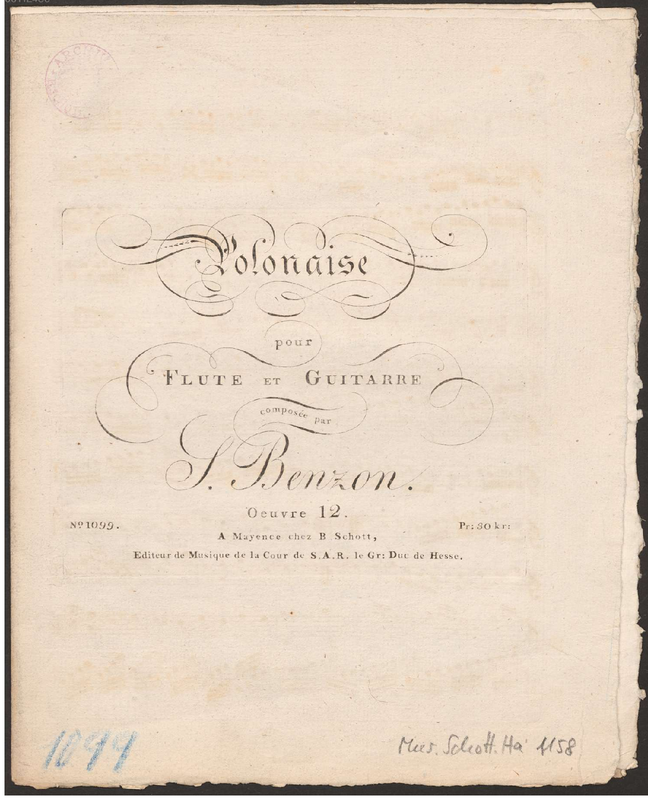 Polonaise
pour
FLUTE ET GUITARRE
composée par
S. Benzon.
Oeuvre 12.
Nº 1099.
Pr: 30 kr:
A Mayence chez B Schott,
Editeur de Musique de la Cour de S.A.R. le Gr: Duc de Hesse.
1099
Mus. Schott. Ha 1158